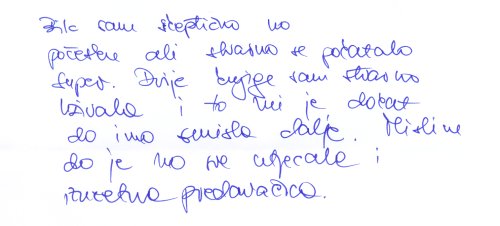 Bila sam skeptična na
početku ali stvarno se pokazalo
super. Dvije knjige sam stvarno
uživala i to mi je dokaz
da ima smisla dalje. Mislim
da je na sve utjecala i
izuzetna predavačica.